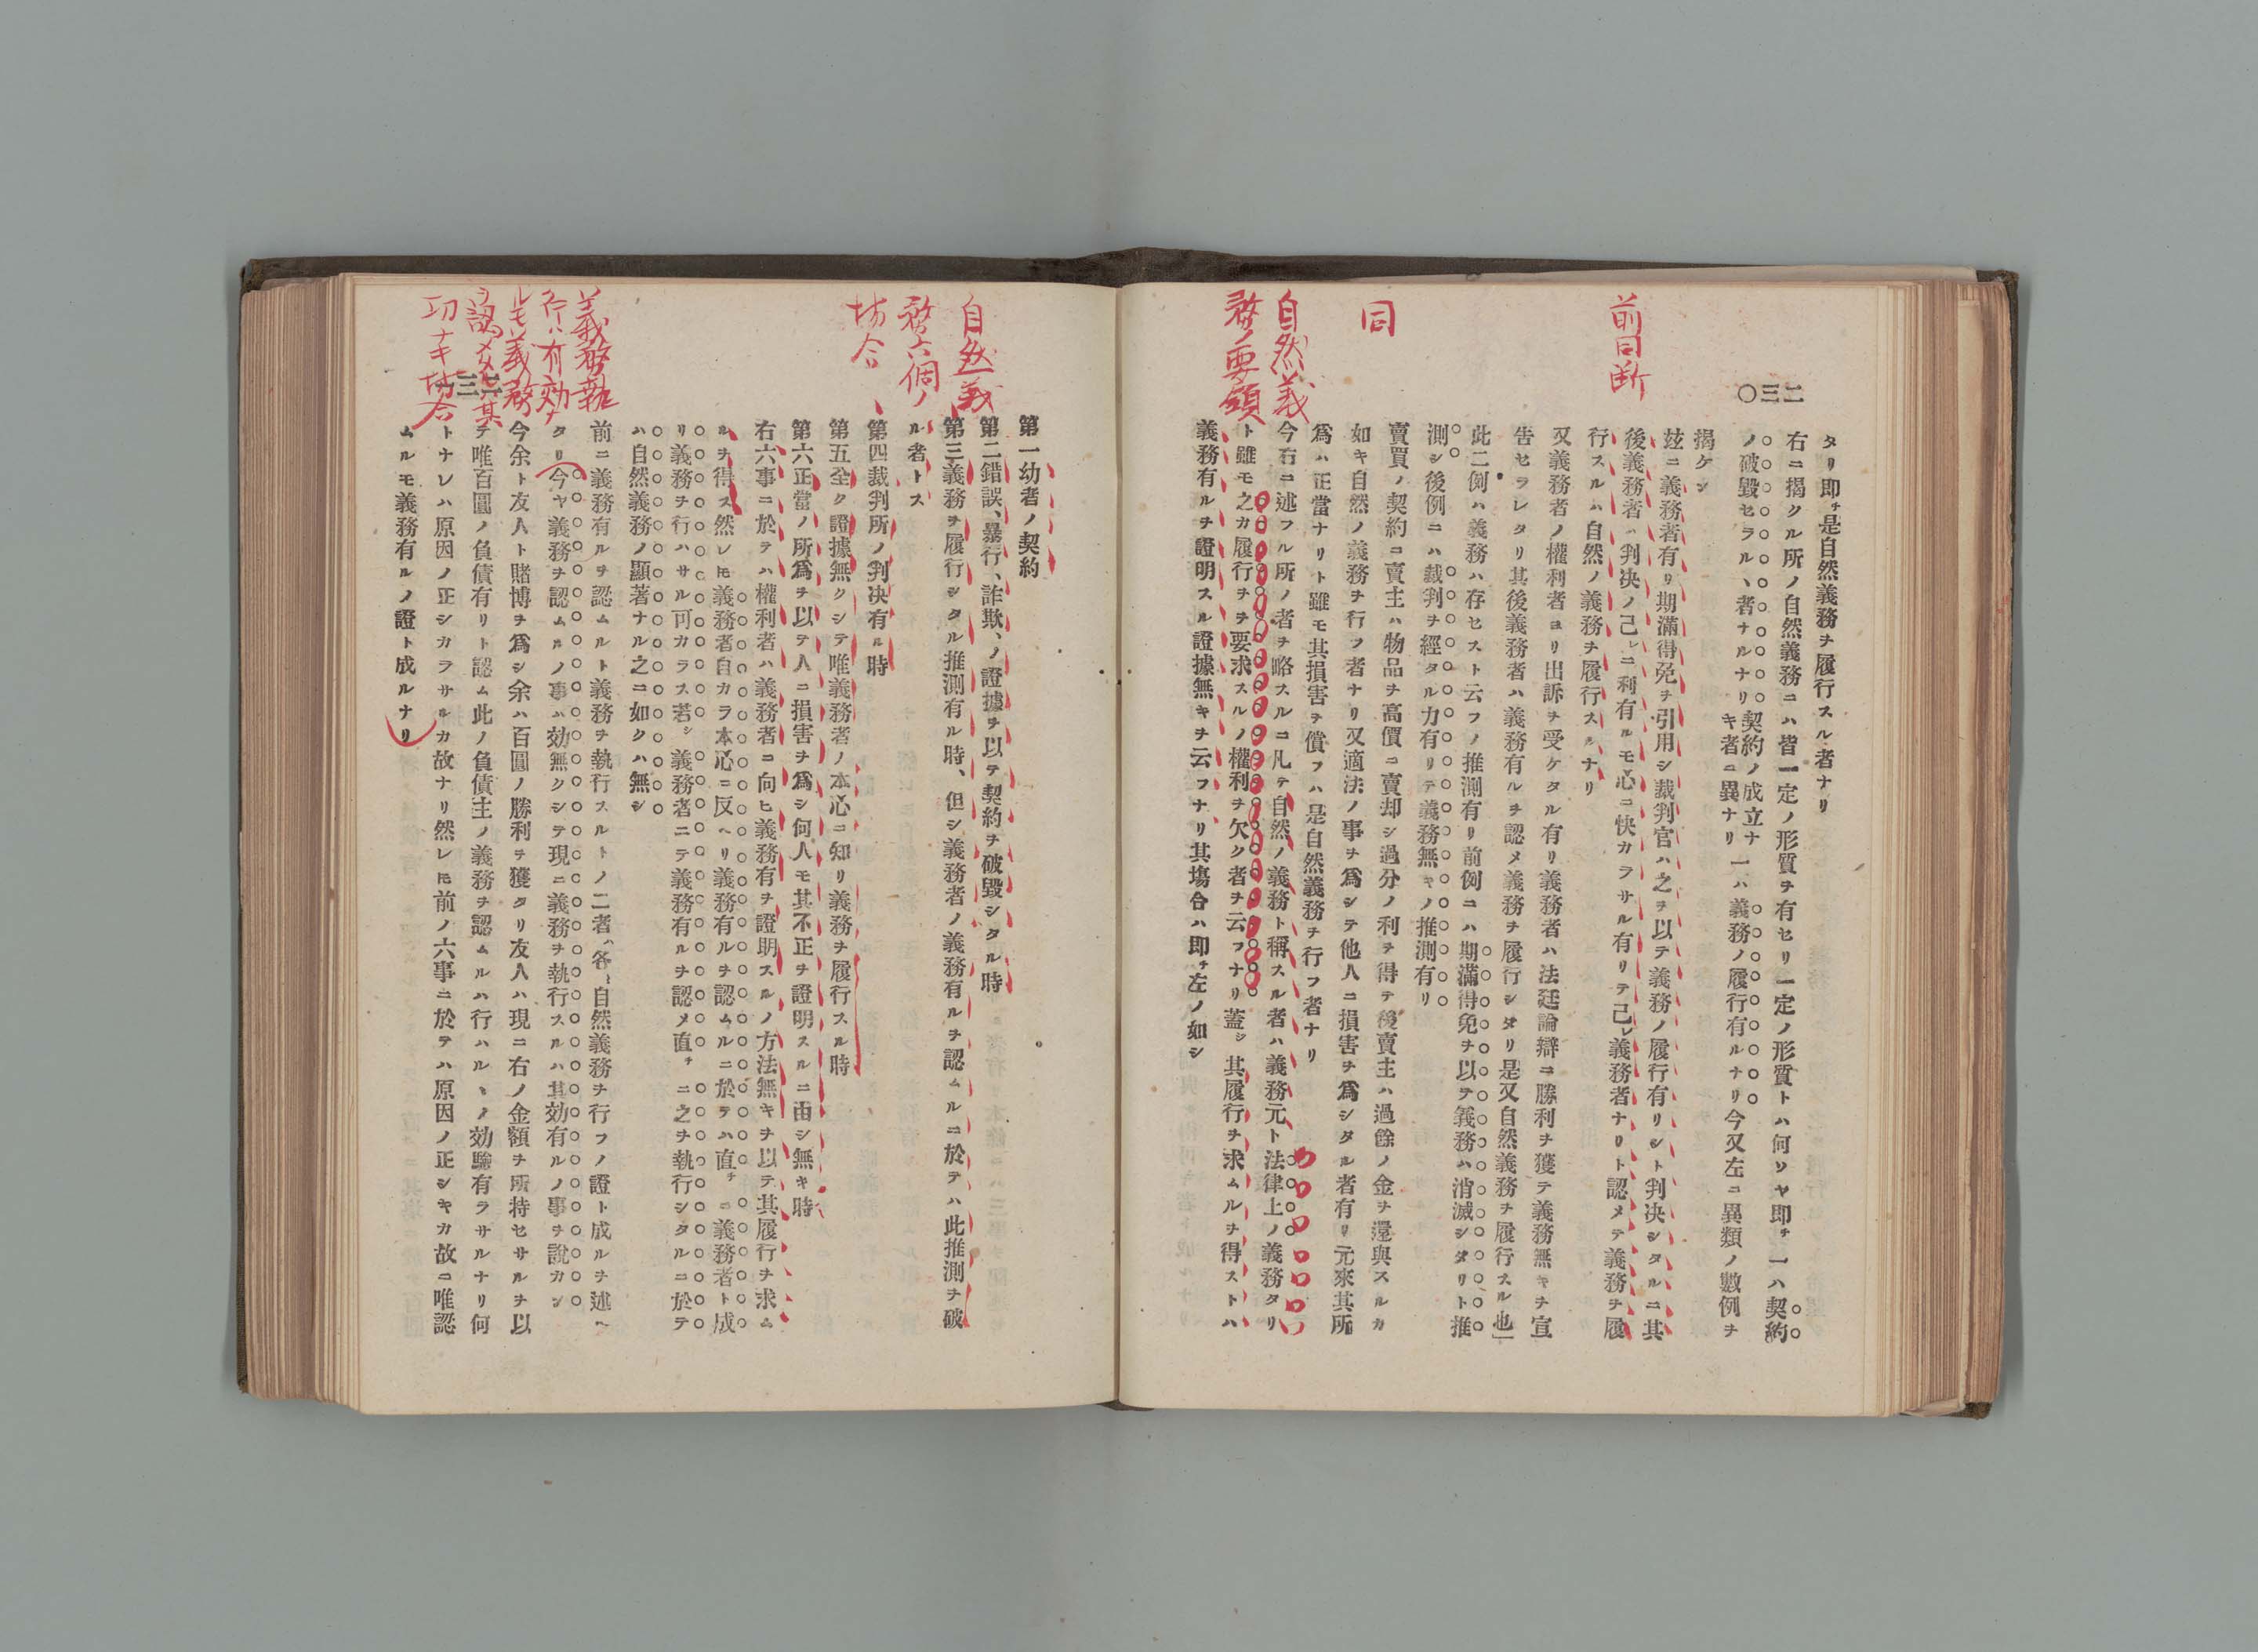 二三〇
前同断
同
自然義
務ノ要領
タリ即チ是自然義務ヲ履行スル者ナリ
右ニ揭クル所ノ自然義務ニハ皆一定ノ形質ヲ有セリ一定ノ形質トハ何ソヤ即チ一ハ契約
ノ破毀セラル、者ナルナリ契約ノ成立ナキ者ニ異ナリ一ハ義務ノ履行有ルナリ今又左ニ異類ノ數例ヲ
揭ケン
玆ニ義務者有リ期滿得免ヲ引用シ裁判官ハ之ヲ以テ義務ノ履行有リシト判决シタルニ其
後義務者ハ判决ノ己レニ利有ルモ心ニ快カラサル有リテ己レ義務者ナリト認メテ義務ヲ履
行スルハ自然ノ義務ヲ履行スルナリ
又義務者ノ權利者ヨリ出訴ヲ受ケタル有リ義務者ハ法廷論辯ニ勝利ヲ獲テ義務無キヲ宣
告セラレタリ其後義務者ハ義務有ルヲ認メ義務ヲ履行シタリ是又自然義務ヲ履行スル也
此二例ハ義務ハ存セスト云フノ推測有リ前例ニハ期滿得免ヲ以テ義務ハ消滅シタリト推
測シ後例ニハ裁判ヲ經タル力有リテ義務無キノ推測有リ
賣買ノ契約ニ賣主ハ物品ヲ高價ニ賣却シ過分ノ利ヲ得テ後賣主ハ過餘ノ金ヲ還與スルカ
如キ自然ノ義務ヲ行フ者ナリ又適法ノ事ヲ爲シテ他人ニ損害ヲ爲シタル者有リ元來其所
爲ハ正當ナリト雖モ其損害ヲ償フハ是自然義務ヲ行フ者ナリ
今右ニ述フル所ノ者ヲ略スルニ凡テ自然ノ義務ト稱スル者ハ義務元ト法律上ノ義務タリ
ト雖モ之カ履行ヲ要求スルノ權利ヲ欠ク者ヲ云フナリ蓋シ其履行ヲ求ムルヲ得ストハ
義務有ルヲ證明スル證據無キヲ云フナリ其塲合ハ即チ左ノ如シ
自然義
務六個ノ
場合
義務執
行ハ有効ナ
ルモ義務
ヲ認メタル其
功ナキ場合
第一幼者ノ契約
第二錯誤、暴行、詐欺、ノ證據ヲ以テ契約ヲ破毀シタル時
第三義務ヲ履行シタル推測有ル時、但シ義務者ノ義務有ルヲ認ムルニ於テハ此推測ヲ破
ル者トス
第四裁判所ノ判决有ル時
第五全ク證據無クシテ唯義務者ノ本心ニ知リ義務ヲ履行スル時
第六正當ノ所爲ヲ以テ人ニ損害ヲ爲シ何人モ其不正ヲ證明スルニ由シ無キ時
右六事ニ於テハ權利者ハ義務者ニ向ヒ義務有ヲ證明スルノ方法無キヲ以テ其履行ヲ求ム
ルヲ得ス然レ𪜈義務者自カラ本心ニ反ヘリ義務有ルヲ認ムルニ於テハ直チニ義務者ト成
リ義務ヲ行ハサル可カラス若シ義務者ニテ義務有ルヲ認メ直チニ之ヲ執行シタルニ於テ
ハ自然義務ノ顯著ナル之ニ如クハ無シ
前ニ義務有ルヲ認ムルト義務ヲ執行スルトノ二者ハ各〻自然義務ヲ行フノ證ト成ルヲ述ヘ
タリ今ヤ義務ヲ認ムルノ事ハ効無クシテ現ニ義務ヲ執行スルハ其効有ルノ事ヲ說カン
今余ト友人ト賭博ヲ爲シ余ハ百圓ノ勝利ヲ獲タリ友人ハ現ニ右ノ金額ヲ所持セサルヲ以
テ唯百圓ノ負債有リト認ム此ノ負債主ノ義務ヲ認ムルハ行ハル、ノ効驗有ラサルナリ何
トナレハ原因ノ正シカラサルカ故ナリ然レ𪜈前ノ六事ニ於テハ原因ノ正シキカ故ニ唯認
ムルモ義務有ルノ證ト成ルナリ